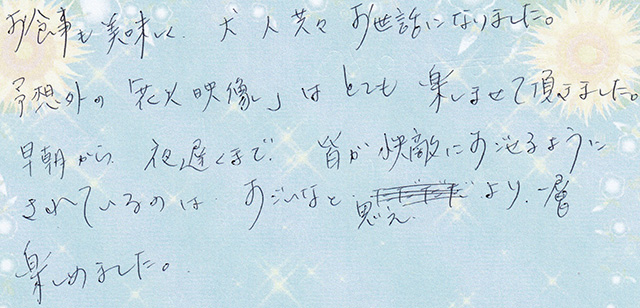 お食事も美味しく、犬人共々お世話になりました。
予想外の「花火映像」はとても楽しませて頂きました。
早朝から、夜遅くまで、皆が快敵にすごせるように
されているのは、すごいなと思え、より、一層
楽しめました。